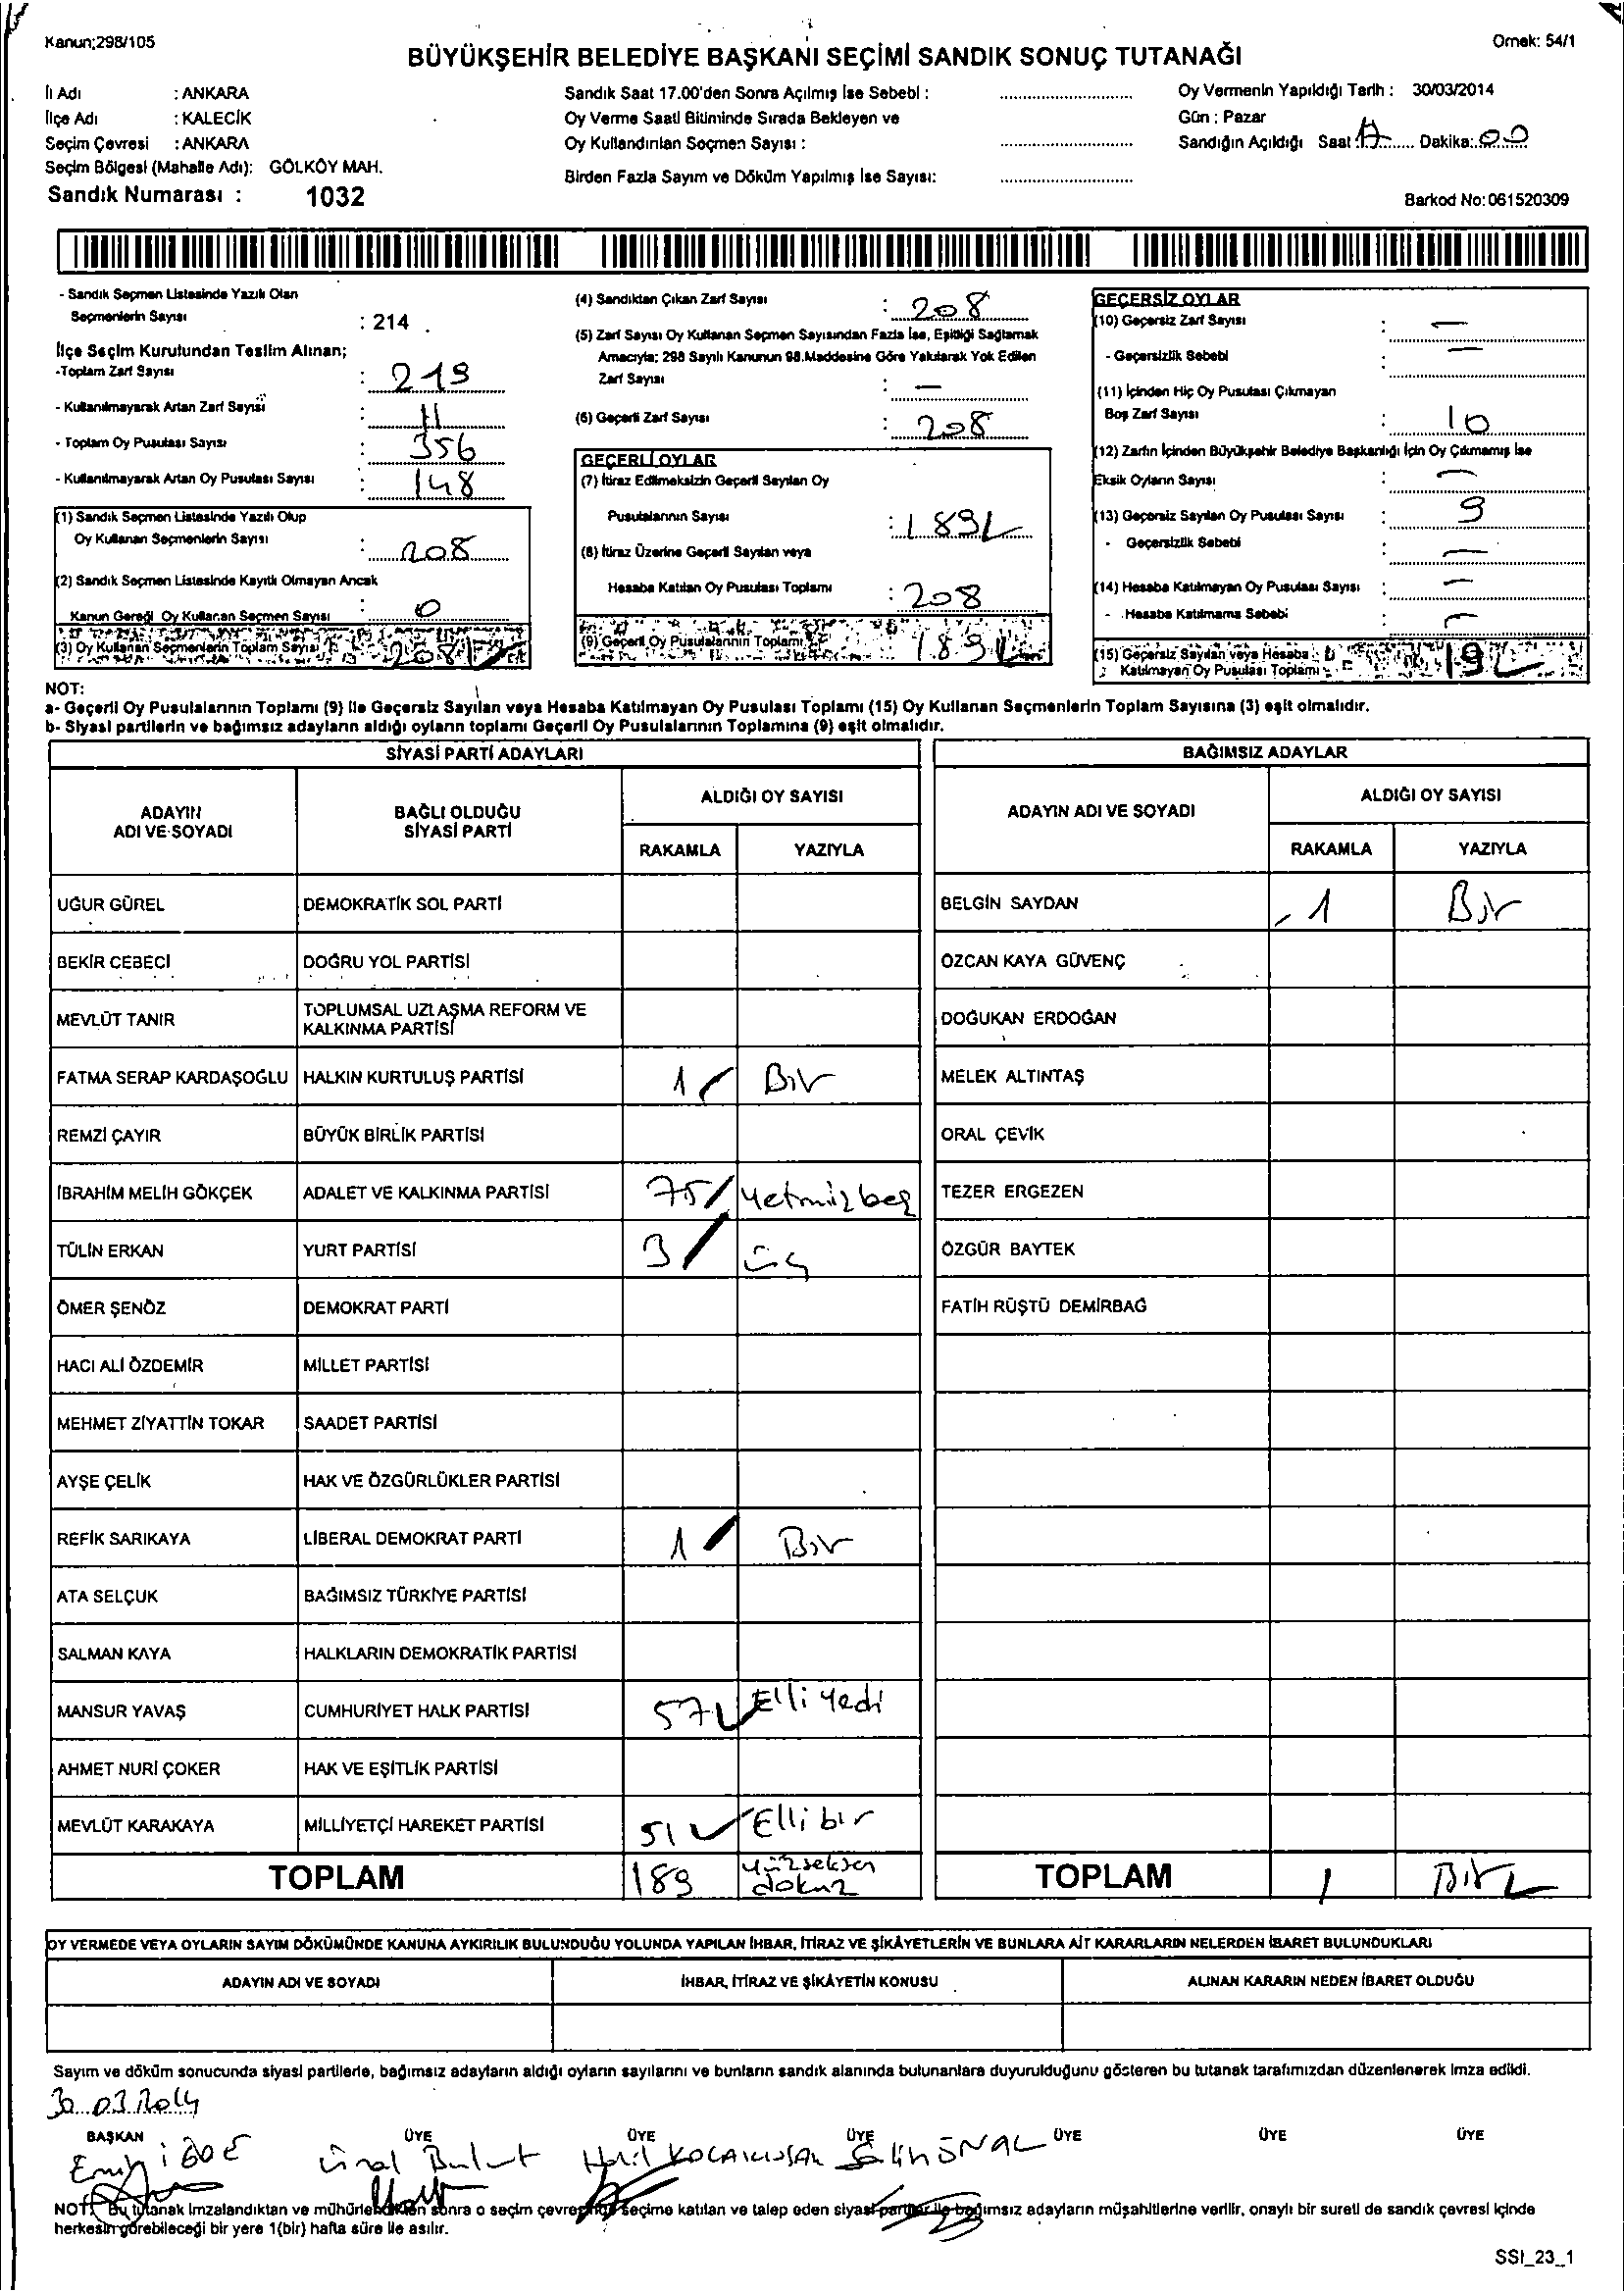 Kanun;298/105
Ornek: 54/1
BÜYÜKŞEHİR BELEDİYE BAŞKANI SEÇİMİ SANDIK SONUÇ TUTANAĞI
İl Adı : ANKARA
İlçe Adı : KALECİK
Seçim Çevresi : ANKARA
Seçim Bölgesi (Mahalle Adı): GÖLKÖY MAH.
Sandık Numarası : 1032
Sandık Saat 17.00'den Sonra Açılmış İse Sebebi :
Oy Verme Saati Bitiminde Sırada Bekleyen ve
Oy Kullandırılan Seçmen Sayısı :
Birden Fazla Sayım ve Döküm Yapılmış İse Sayısı:
Oy Vermenin Yapıldığı Tarih : 30/03/2014
Gün : Pazar
Sandığın Açıldığı Saat: 17 Dakika: 00
Barkod No: 061520309
- Sandık Seçmen Listesinde Yazılı Olan
Seçmenlerin Sayısı : 214
İlçe Seçim Kurulundan Teslim Alınan;
-Toplam Zarf Sayısı : 219
- Kullanılmayarak Artan Zarf Sayısı : 11
- Toplam Oy Pusulası Sayısı : 356
- Kullanılmayarak Artan Oy Pusulası Sayısı : 148
(1) Sandık Seçmen Listesinde Yazılı Olup
Oy Kullanan Seçmenlerin Sayısı : 208
(2) Sandık Seçmen Listesinde Kayıtlı Olmayan Ancak
Kanun Gereği Oy Kullanan Seçmen Sayısı : 0
(3) Oy Kullanan Seçmenlerin Toplam Sayısı 208
(4) Sandıktan Çıkan Zarf Sayısı : 208
(5) Zarf Sayısı Oy Kullanan Seçmen Sayısından Fazla İse, Eşitliği Sağlamak
Amacıyla; 298 Sayılı Kanunun 98.Maddesine Göre Yakılarak Yok Edilen
Zarf Sayısı : —
(6) Geçerli Zarf Sayısı : 208
GEÇERLİ OYLAR
(7) İtiraz Edilmeksizin Geçerli Sayılan Oy
Pusulalarının Sayısı : 189
(8) İtiraz Üzerine Geçerli Sayılan veya
Hesaba Katılan Oy Pusulası Toplamı : 208
(9) Geçerli Oy Pusulalarının Toplamı 189
GEÇERSİZ OYLAR
(10) Geçersiz Zarf Sayısı : —
- Geçersizlik Sebebi : —
(11) İçinden Hiç Oy Pusulası Çıkmayan
Boş Zarf Sayısı : 10
(12) Zarfın İçinden Büyükşehir Belediye Başkanlığı İçin Oy Çıkmamış İse
Eksik Oyların Sayısı : —
(13) Geçersiz Sayılan Oy Pusulası Sayısı : 9
- Geçersizlik Sebebi : —
(14) Hesaba Katılmayan Oy Pusulası Sayısı : —
- Hesaba Katılmama Sebebi : —
(15) Geçersiz Sayılan veya Hesaba
Katılmayan Oy Pusulası Toplamı : 19
NOT:
a- Geçerli Oy Pusulalarının Toplamı (9) ile Geçersiz Sayılan veya Hesaba Katılmayan Oy Pusulası Toplamı (15) Oy Kullanan Seçmenlerin Toplam Sayısına (3) eşit olmalıdır.
b- Siyasi partilerin ve bağımsız adayların aldığı oyların toplamı Geçerli Oy Pusulalarının Toplamına (9) eşit olmalıdır.
SİYASİ PARTİ ADAYLARI
ADAYIN ADI VE SOYADI BAĞLI OLDUĞU SİYASİ PARTİ ALDIĞI OY SAYISI
RAKAMLA YAZIYLA
UĞUR GÜREL DEMOKRATİK SOL PARTİ
BEKİR CEBECİ DOĞRU YOL PARTİSİ
MEVLÜT TANIR TOPLUMSAL UZLAŞMA REFORM VE KALKINMA PARTİSİ
FATMA SERAP KARDAŞOĞLU HALKIN KURTULUŞ PARTİSİ 1 Bir
REMZİ ÇAYIR BÜYÜK BİRLİK PARTİSİ
İBRAHİM MELİH GÖKÇEK ADALET VE KALKINMA PARTİSİ 75 yetmiş beş
TÜLİN ERKAN YURT PARTİSİ 3 üç
ÖMER ŞENÖZ DEMOKRAT PARTİ
HACI ALİ ÖZDEMİR MİLLET PARTİSİ
MEHMET ZİYATTİN TOKAR SAADET PARTİSİ
AYŞE ÇELİK HAK VE ÖZGÜRLÜKLER PARTİSİ
REFİK SARIKAYA LİBERAL DEMOKRAT PARTİ 1 Bir
ATA SELÇUK BAĞIMSIZ TÜRKİYE PARTİSİ
SALMAN KAYA HALKLARIN DEMOKRATİK PARTİSİ
MANSUR YAVAŞ CUMHURİYET HALK PARTİSİ 57 Elli yedi
AHMET NURİ ÇOKER HAK VE EŞİTLİK PARTİSİ
MEVLÜT KARAKAYA MİLLİYETÇİ HAREKET PARTİSİ 51 Elli bir
TOPLAM 189 yüzseksen dokuz
BAĞIMSIZ ADAYLAR
ADAYIN ADI VE SOYADI ALDIĞI OY SAYISI
RAKAMLA YAZIYLA
BELGİN SAYDAN 1 Bir
ÖZCAN KAYA GÜVENÇ
DOĞUKAN ERDOĞAN
MELEK ALTINTAŞ
ORAL ÇEVİK
TEZER ERGEZEN
ÖZGÜR BAYTEK
FATİH RÜŞTÜ DEMİRBAĞ
TOPLAM 1 Bir
OY VERMEDE VEYA OYLARIN SAYIM DÖKÜMÜNDE KANUNA AYKIRILIK BULUNDUĞU YOLUNDA YAPILAN İHBAR, İTİRAZ VE ŞİKÂYETLERİN VE BUNLARA AİT KARARLARIN NELERDEN İBARET BULUNDUKLARI
ADAYIN ADI VE SOYADI İHBAR, İTİRAZ VE ŞİKÂYETİN KONUSU ALINAN KARARIN NEDEN İBARET OLDUĞU
Sayım ve döküm sonucunda siyasi partilerle, bağımsız adayların aldığı oyların sayılarını ve bunların sandık alanında bulunanlara duyurulduğunu gösteren bu tutanak tarafımızdan düzenlenerek imza edildi.
30.03.2014
BAŞKAN ÜYE ÜYE ÜYE ÜYE ÜYE ÜYE
Ünal Bulut Halil Salih ÖNAL
NOT: Bu tutanak imzalandıktan ve mühürlendikten sonra o seçim çevresinde seçime katılan ve talep eden siyasi partiler ile bağımsız adayların müşahitlerine verilir, onaylı bir sureti de sandık çevresi içinde
herkesin görebileceği bir yere 1(bir) hafta süre ile asılır.
SSI_23_1